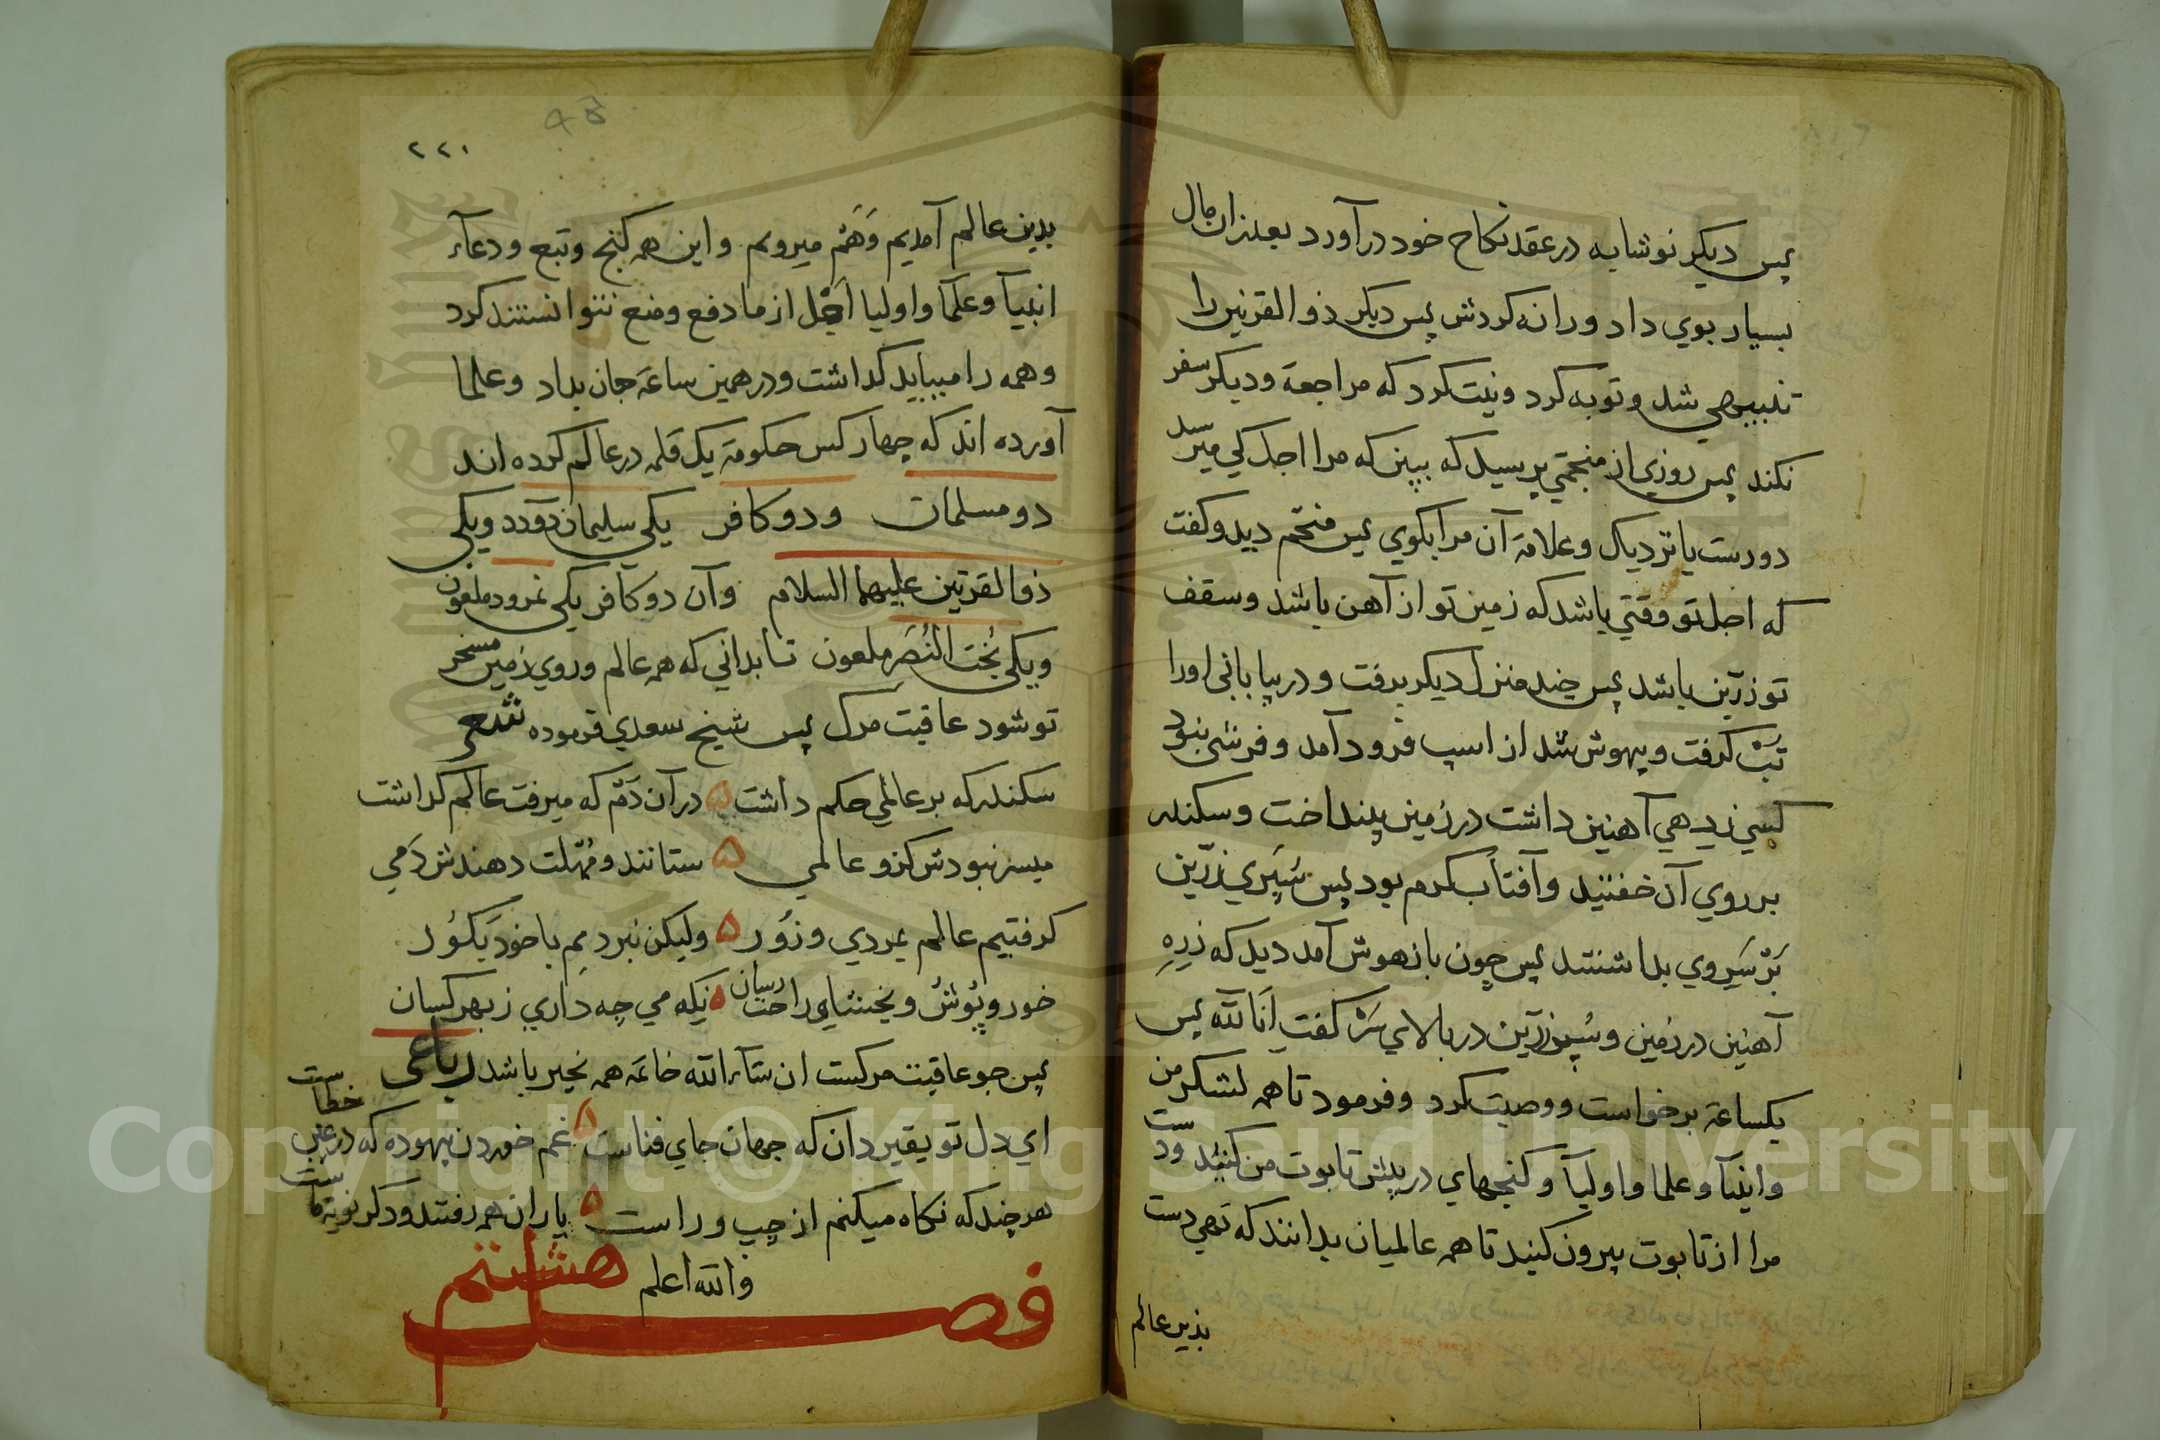 پس دیکر نوشابه در عقد نکاح خود در آورد بعد از ان مال
بسیار بوي داد و روانه کردش پس دیکر ذو القرنین را
تنبیهي شد و توبه کرد و نیت کرد که مراجعة و دیکر سفر
نکند پس روزي از منجمي پرسید که ببین که مرا اجل کي میرسد
دورست یا نزدیک و علامة آن مرا بکوي پس منجم دید و کفت
که اجل تو وقتي باشد که زمین تو از آهن باشد و سقف
تو زرّین باشد پس چند منزل دیکر برفت و در بیابانی اورا
تب کرفت و بیهوش شد از اسپ فرود آمد و فرشی نبود
کسي زرهي آهنین داشت در زمین بینداخت و سکندر
بر روي آن خفتید و آفتاب کرم بود پس سَپَري زرّین
بَرْ سَرِ وي بداشتند پس چون باز هوش آمد دید که زرِهِ
آهنین در زمین و سُپر زرّین در بالاي سَرْ کفت اَنَا لله پس
یکساعة برخواست و وصیت کرد و فرمود تا همه لشکر من
و انبیآ و علما و اولیآ و کنجهاي در پیش تابوت من کنید و دست
مرا از تابوت بیرون کنید تا همه عالمیان بدانند که تهي دست
بدین عالم
۲۲۱
بدین عالم آمدیم وَ هَمْ میرویم و این همه کنج و تبع و دعآء
انبیآ و علمآ و اولیا اَجَل از ما دفع و منع نتوانستند کرد
و همه را میباید کذاشت و در همین ساعة جان بداد و علما
آورده اند که چهار کس حکومة یک قلمه در عالم کرده اند
دو مسلمان و دو کافر یکي سلیمان داود و یکي
ذو القرنین علیهما السلام و آن دو کافر یکي نمرود ملعون
و یکي بُخْت النُصَر ملعون تا بداني که همه عالم و روي زمین مسخر
تو شود عاقبت مرک پس شیخ سعدي فرموده شعر
سکندر که بر عالمي حکم داشت ۵ در آن دَمْ که میرفت عالم کذاشت
میسر نبودش کزو عالمي ۵ ستانند و مُهْلت دهندش دَمي
کرفتیم عالم بمردي و زُور ۵ ولیکن نبردیم با خود بَکُور
خور و پُوشْ و بخشاي راحت رسان ۵ نکه مي چه داري ز بهر کسان
پس جو عاقبت مرکست ان شآء الله خاتمه همه بخیر باشد رباعي
اي دل تو یقین دان که جهان جاي فناست ۵ غم خوردن بیهوده که در غیب خطاست
هر چند که نکاه میکنم از چپ و راست ۵ یاران همه رفتند و دکر نوبة ماست
و الله اعلم
فصل هشتم